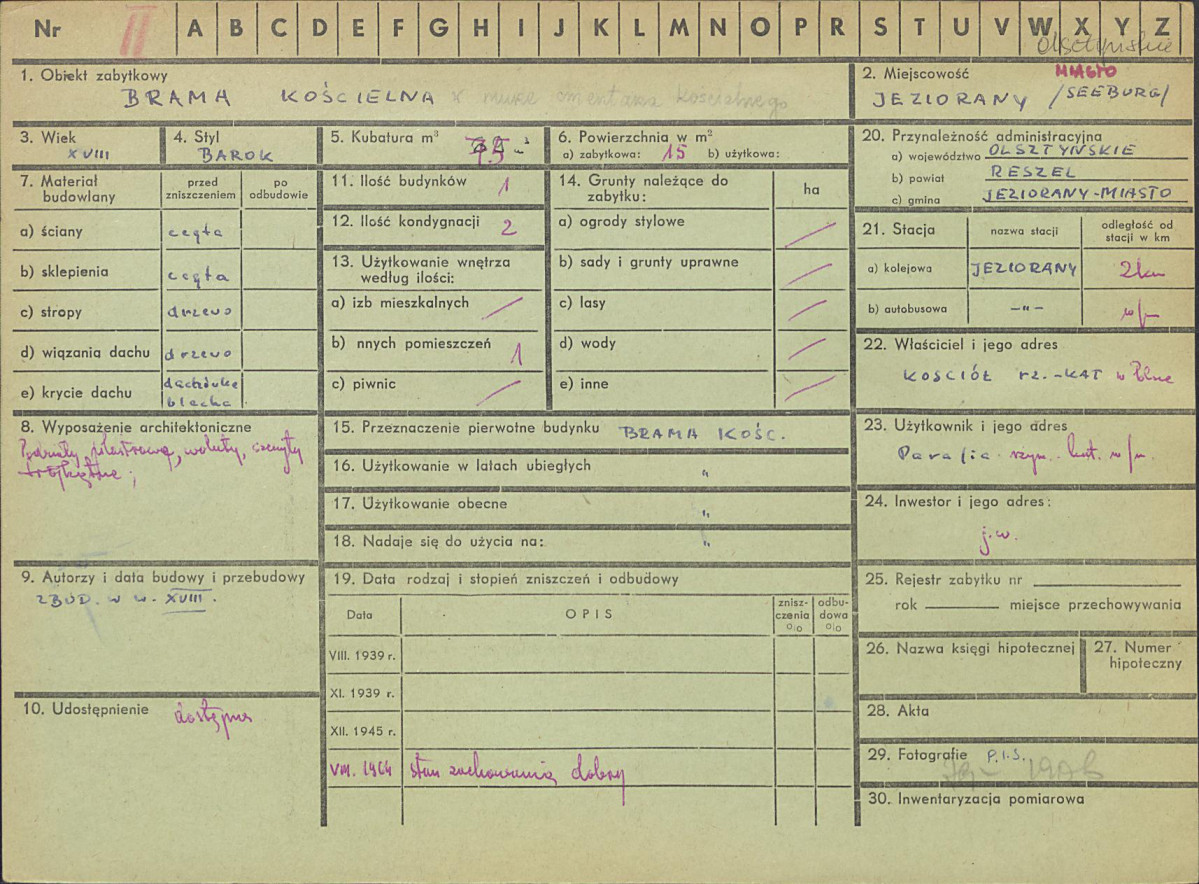 Nr II A B C D E F G H I J K L M N O P R S T U V W X Y Z
olsztyńskie
1. Obiekt zabytkowy
BRAMA KOŚCIELNA w murze cmentarza kościelnego
2. Miejscowość MIASTO
JEZIORANY /SEEBURG/
3. Wiek
XVIII
4. Styl
BAROK
5. Kubatura m³
6. Powierzchnia w m²
a) zabytkowa: 15 b) użytkowa:
20. Przynależność administracyjna
a) województwo OLSZTYŃSKIE
b) powiat RESZEL
c) gmina JEZIORANY-MIASTO
7. Materiał budowlany
przed zniszczeniem
po odbudowie
a) ściany cegła
b) sklepienia cegła
c) stropy drzewo
d) wiązania dachu drzewo
e) krycie dachu dachówka
blacha
11. Ilość budynków 1
12. Ilość kondygnacji 2
13. Użytkowanie wnętrza
według ilości:
a) izb mieszkalnych /
b) nnych pomieszczeń 1
c) piwnic /
14. Grunty należące do
zabytku:
ha
a) ogrody stylowe /
b) sady i grunty uprawne /
c) lasy /
d) wody /
e) inne /
21. Stacja
nazwa stacji
odległość od
stacji w km
a) kolejowa JEZIORANY 2km
b) autobusowa -"- w/m
22. Właściciel i jego adres
KOŚCIÓŁ RZ.-KAT w Polsce
8. Wyposażenie architektoniczne
Podziały pilastrowe, woluty, szczyty
trójkątne;
15. Przeznaczenie pierwotne budynku BRAMA KOŚC.
16. Użytkowanie w latach ubiegłych "
17. Użytkowanie obecne "
18. Nadaje się do użycia na: "
23. Użytkownik i jego adres
Parafia rzym. kat. w/m.
24. Inwestor i jego adres:
j.w.
9. Autorzy i data budowy i przebudowy
ZBUD. W W. XVIII.
19. Data rodzaj i stopień zniszczeń i odbudowy
Data
OPIS
znisz-
czenia
%
odbu-
dowa
%
VIII. 1939 r.
XI. 1939 r.
XII. 1945 r.
VIII. 1964 stan zachowania dobry
25. Rejestr zabytku nr
rok miejsce przechowywania
26. Nazwa księgi hipotecznej
27. Numer
hipoteczny
10. Udostępnienie dostępna
28. Akta
29. Fotografie P.I.S.
30. Inwentaryzacja pomiarowa